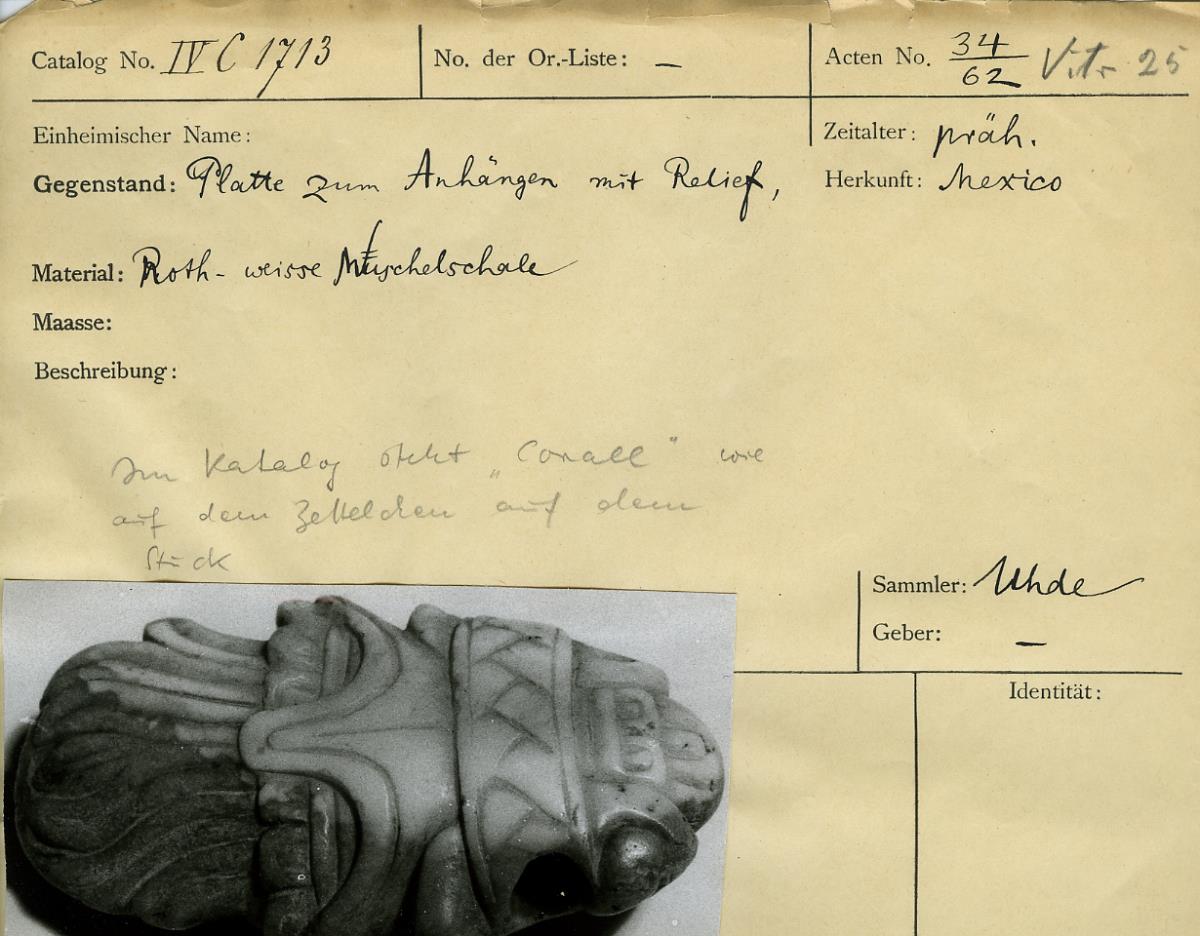 Catalog No. IV C 1713
No. der Or.-Liste: —
Acten No. 34/62 Vitr 25
Einheimischer Name:
Zeitalter: präh.
Gegenstand: Platte zum Anhängen mit Relief,
Herkunft: Mexico
Material: Roth-weisse Muschelschale
Maasse:
Beschreibung:
Im Katalog steht „Corall" wie
auf dem Zettelchen auf dem
Stück
Sammler: Uhde
Geber: —
Identität: